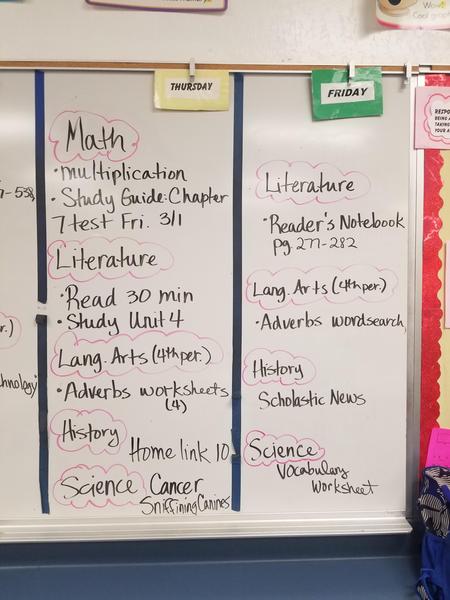 THURSDAY
Math
• multiplication
• Study Guide: Chapter
7 test Fri. 3/1
Literature
• Read 30 min
• Study Unit 4
Lang. Arts (4th per.)
• Adverbs worksheets
(4)
History
Home link 10
Science Cancer
Sniffining Canines
FRIDAY
Literature
• Reader's Notebook
pg. 277-282
Lang. Arts (4th per.)
• Adverbs wordsearch
History
Scholastic News
Science
Vocabulary
Worksheet
Wow!
Cool
BEING A
TAKING
YOUR A